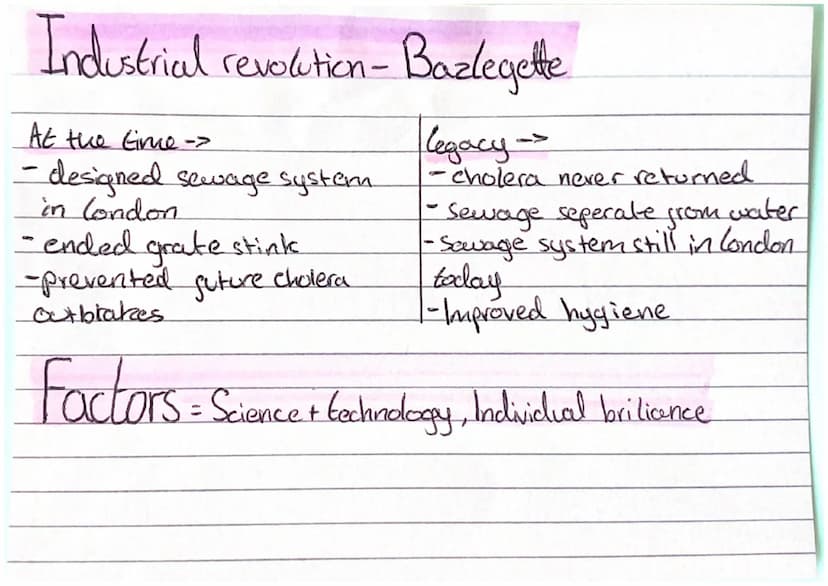 Industrial revolution - Bazlegette
At the time ->
- designed sewage system
in London
- ended grate stink
- prevented future cholera
outbrakes
legacy ->
- cholera never returned
- sewage seperate from water
- Sewage system still in London
today
- Improved hygiene
Factors = Science + technology, Individual briliance